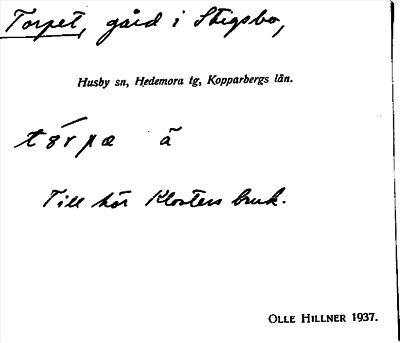 Torpet, gård i Stigsbo,
Husby sn, Hedemora tg, Kopparbergs län.
tórpæ ã
Till hör Klosters bruk.
OLLE HILLNER 1937.